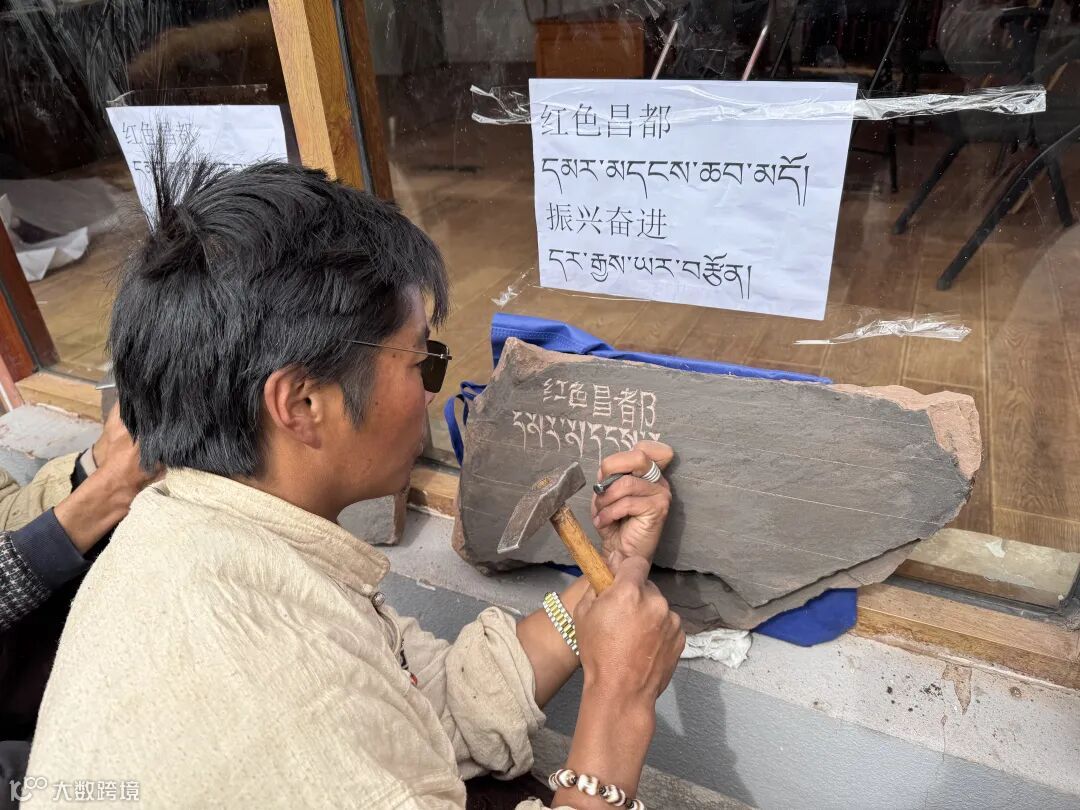 红色昌都
红色昌都
དམར་མདངས་ཆབ་མདོ།
振兴奋进
དར་རྒྱས་ཡར་བརྩོན།
红色昌都
དམར་མདངས་
大数跨境